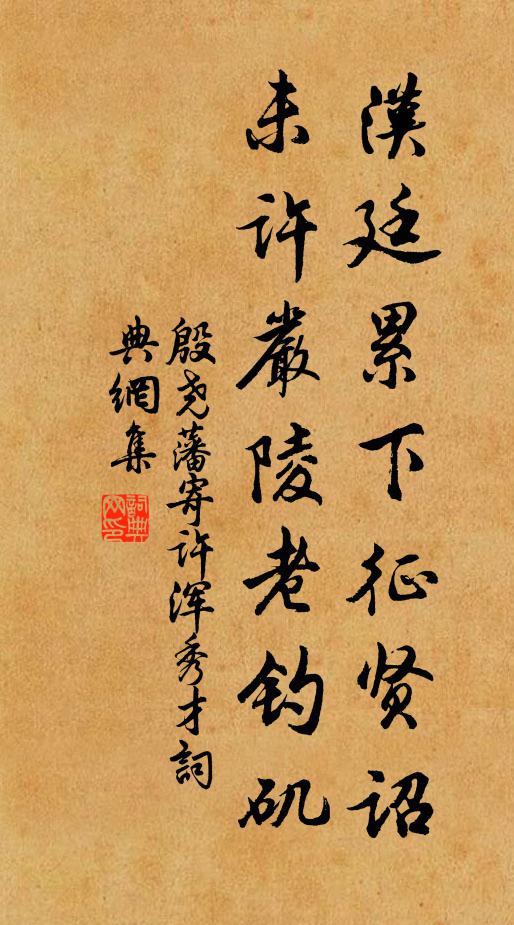 漢廷累下征贤詔
未許嚴陵老釣矶
殷尧藩寄许浑秀才詞
典網集
詞典网印